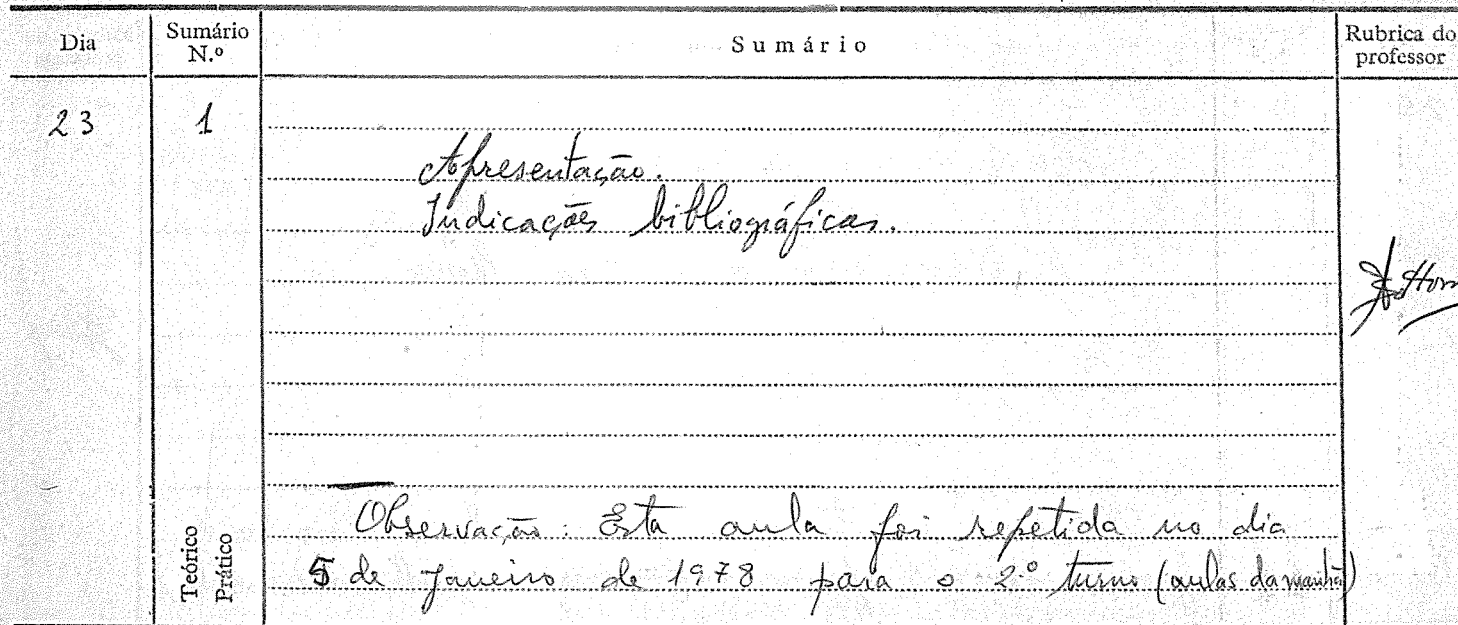 Dia
Sumário N.º
Sumário
Rubrica do professor
23
1
Apresentação.
Indicações bibliográficas.
Teórico
Prático
Observação: Esta aula foi repetida no dia
5 de Janeiro de 1978 para o 2º turno (aulas da manhã)